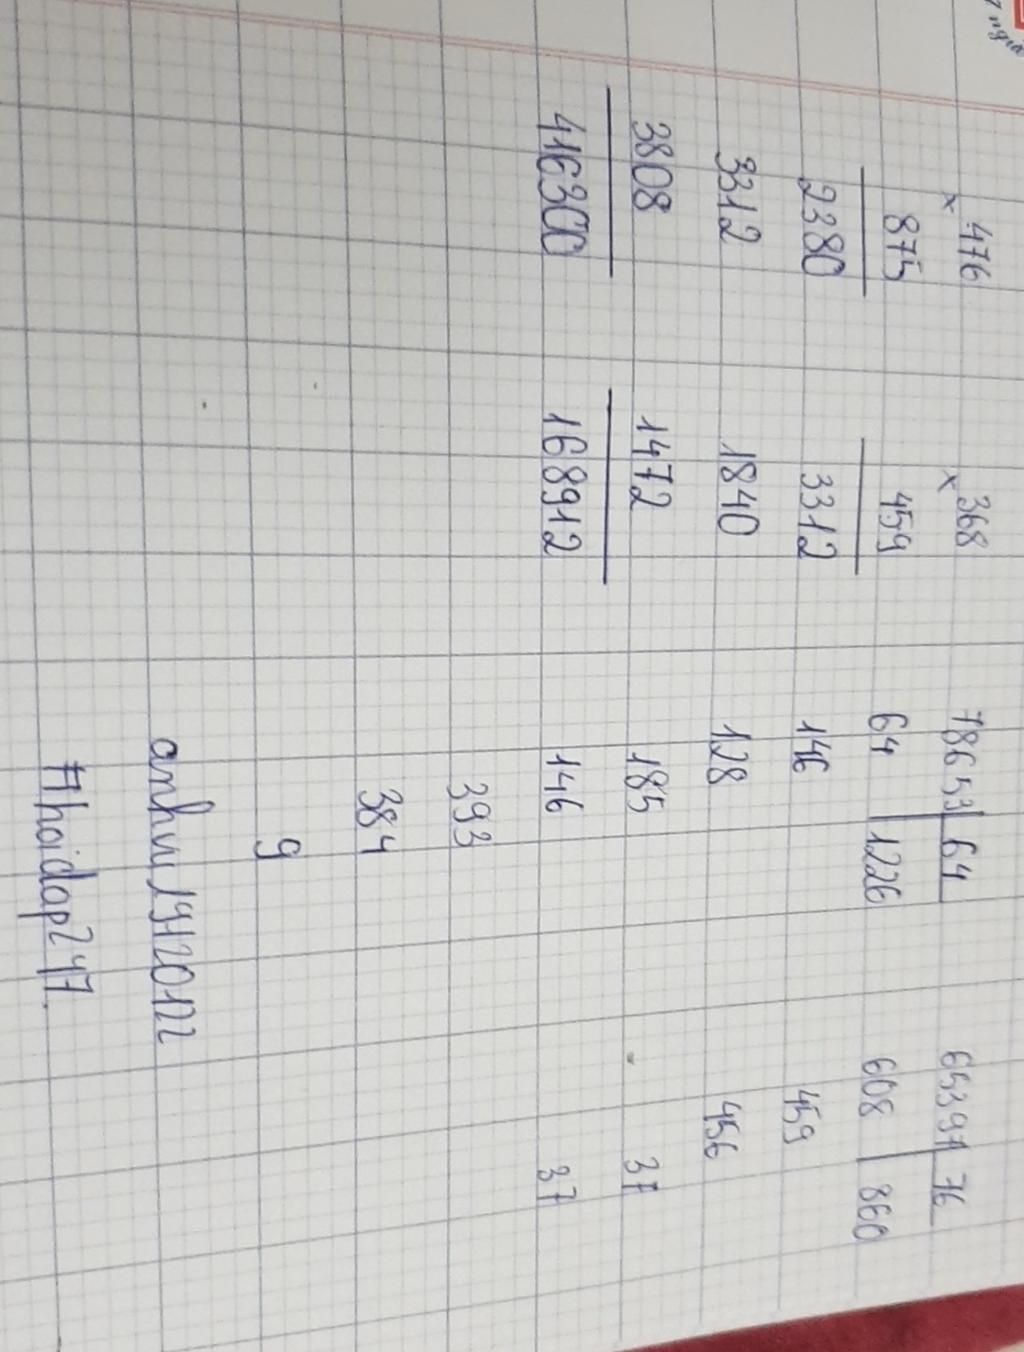 x 476 x 368 78653 64 65397 76
875 459 64 1226 608 860
2380 3312 146 459
3312 1840 128 456
3808 1472 185 37
416300 168912 146 37
393
384
9
#hoidap247